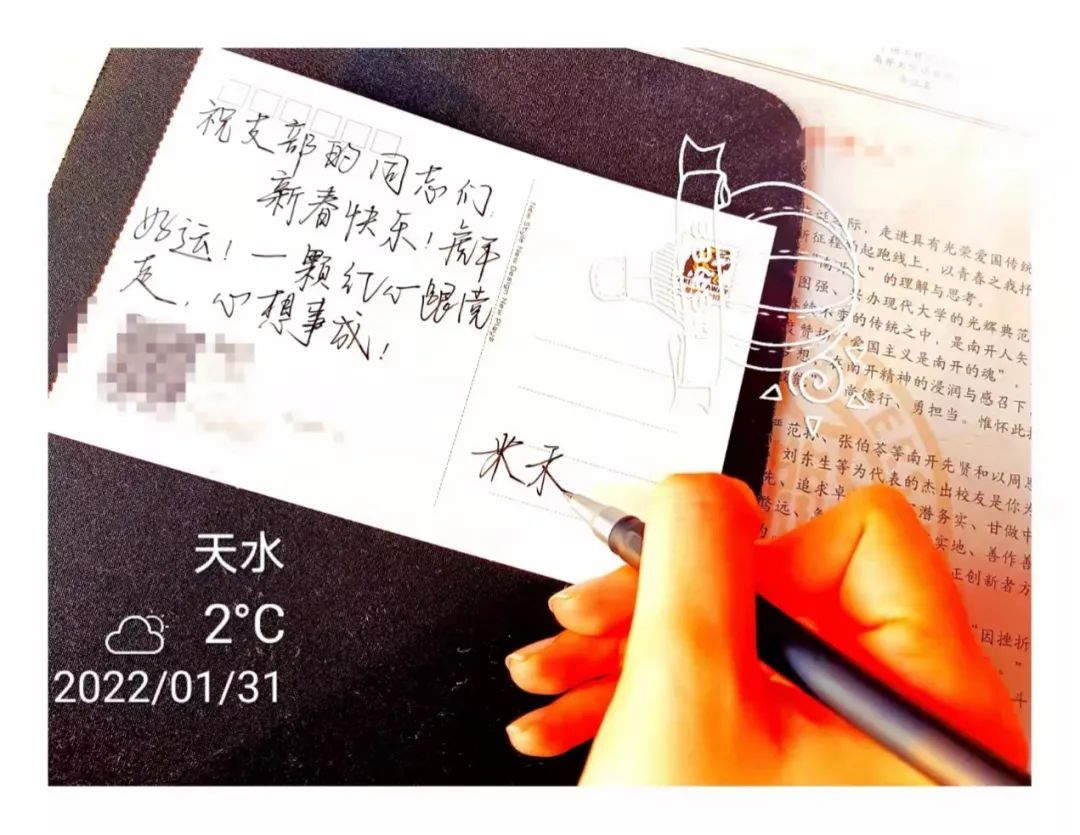 祝支部的同志们
新春快乐！虎年
好运！一颗红心跟党
走，心想事成！
米禾
天水
2°C
2022/01/31
之际，走进具有光荣爱国传统
新征程的起跑线上，以青春之我抒
的理解与思考。
图强、兴办现代大学的光辉典范
不变的传统之中，是南开人矢
爱国主义是南开的魂"，
在南开精神的浸润与感召下
尚德行、勇担当。惟怀此
范孙、张伯苓等南开先贤和以周恩
刘东生等为代表的杰出校友是你为
追求卓
潜务实、甘做中
实地、善作善
正创新者方
"因挫折
斗